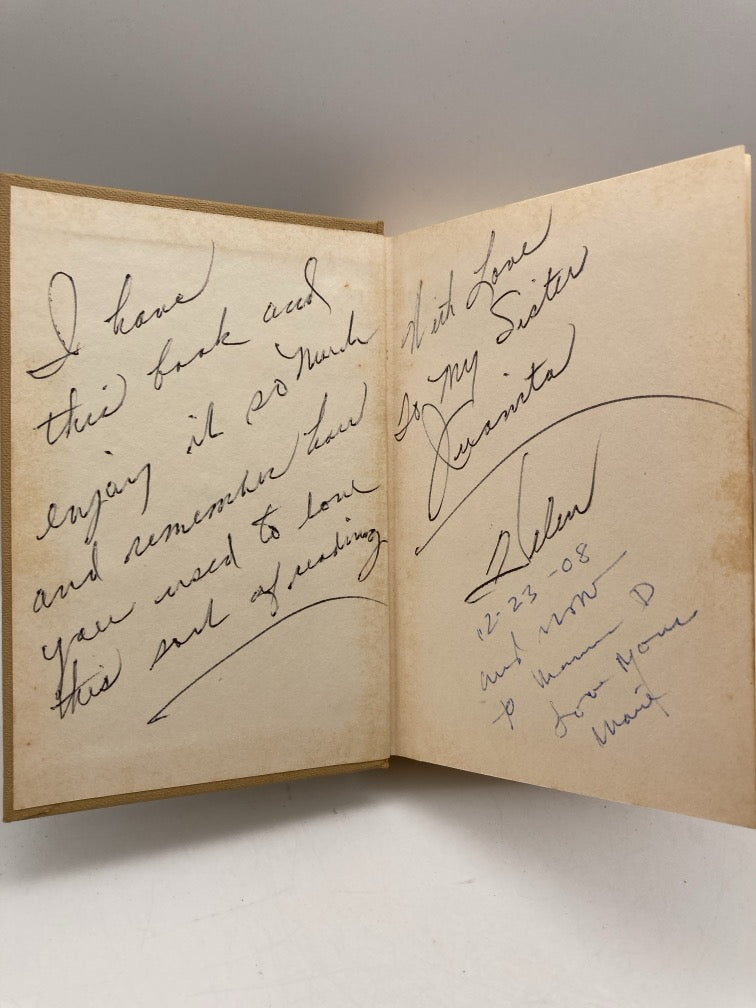 I have
this book and
enjoy it so Much
and remember how
you used to love
this sort of reading
With Love
To My Sister
Juanita
Helen
12-23-08
and now
to Mama D
Love Mom
Marie